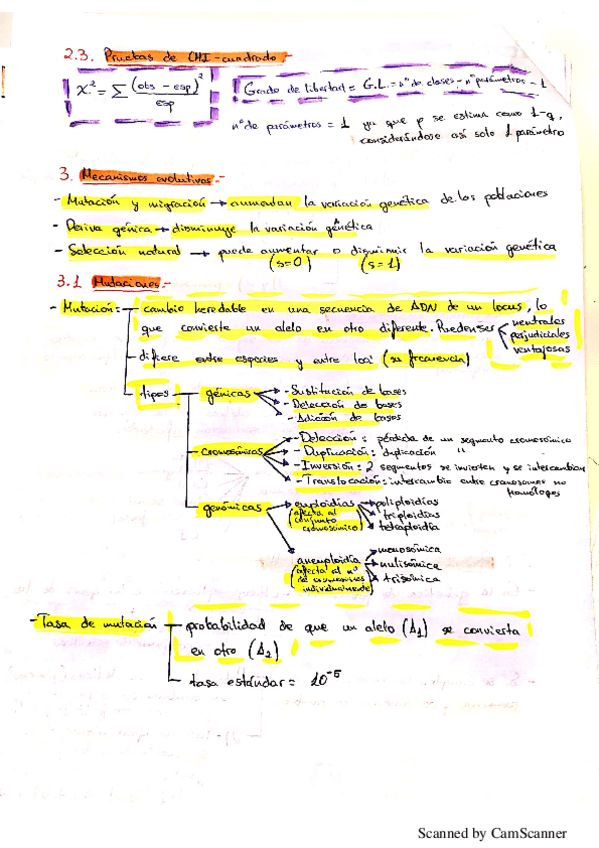 2.3. Pruebas de CHI-cuadrado.-
X² = Σ (obs - esp)² / esp
Grado de libertad = G.L. = nº de clases - nº parámetros - 1
nº de parámetros = 1 ya que p se estima como 1-q,
considerándose así solo 1 parámetro
3. Mecanismos evolutivos.-
- Mutación y migración → aumentan la variación genética de las poblaciones
- Deriva génica → disminuye la variación genética
- Selección natural → puede aumentar o disminuir la variación genética
(s=0) (s=1)
3.1 Mutaciones.-
- Mutación: - cambio heredable en una secuencia de ADN de un locus, lo
que convierte un alelo en otro diferente. Pueden ser neutrales
perjudiciales
ventajosas
- difiere entre especies y entre loci (su frecuencia)
- tipos génicas - Sustitución de bases
- Delección de bases
- Adición de bases
cromosómicas - Delección: pérdida de un segmento cromosómico
- Duplicación: duplicación " "
- Inversión: 2 segmentos se invierten y se intercambian
- Translocación: intercambio entre cromosomas no
homólogos
genómicas euploidías poliploidías
(afecta al conjunto cromosómico) triploidías
tetraploidía
aneuploidía monosómica
(afecta al nº de cromosomas individualmente) nulisómica
trisómica
- Tasa de mutación - probabilidad de que un alelo (A₁) se convierta
en otro (A₂)
- tasa estándar = 10⁻⁵
Scanned by CamScanner